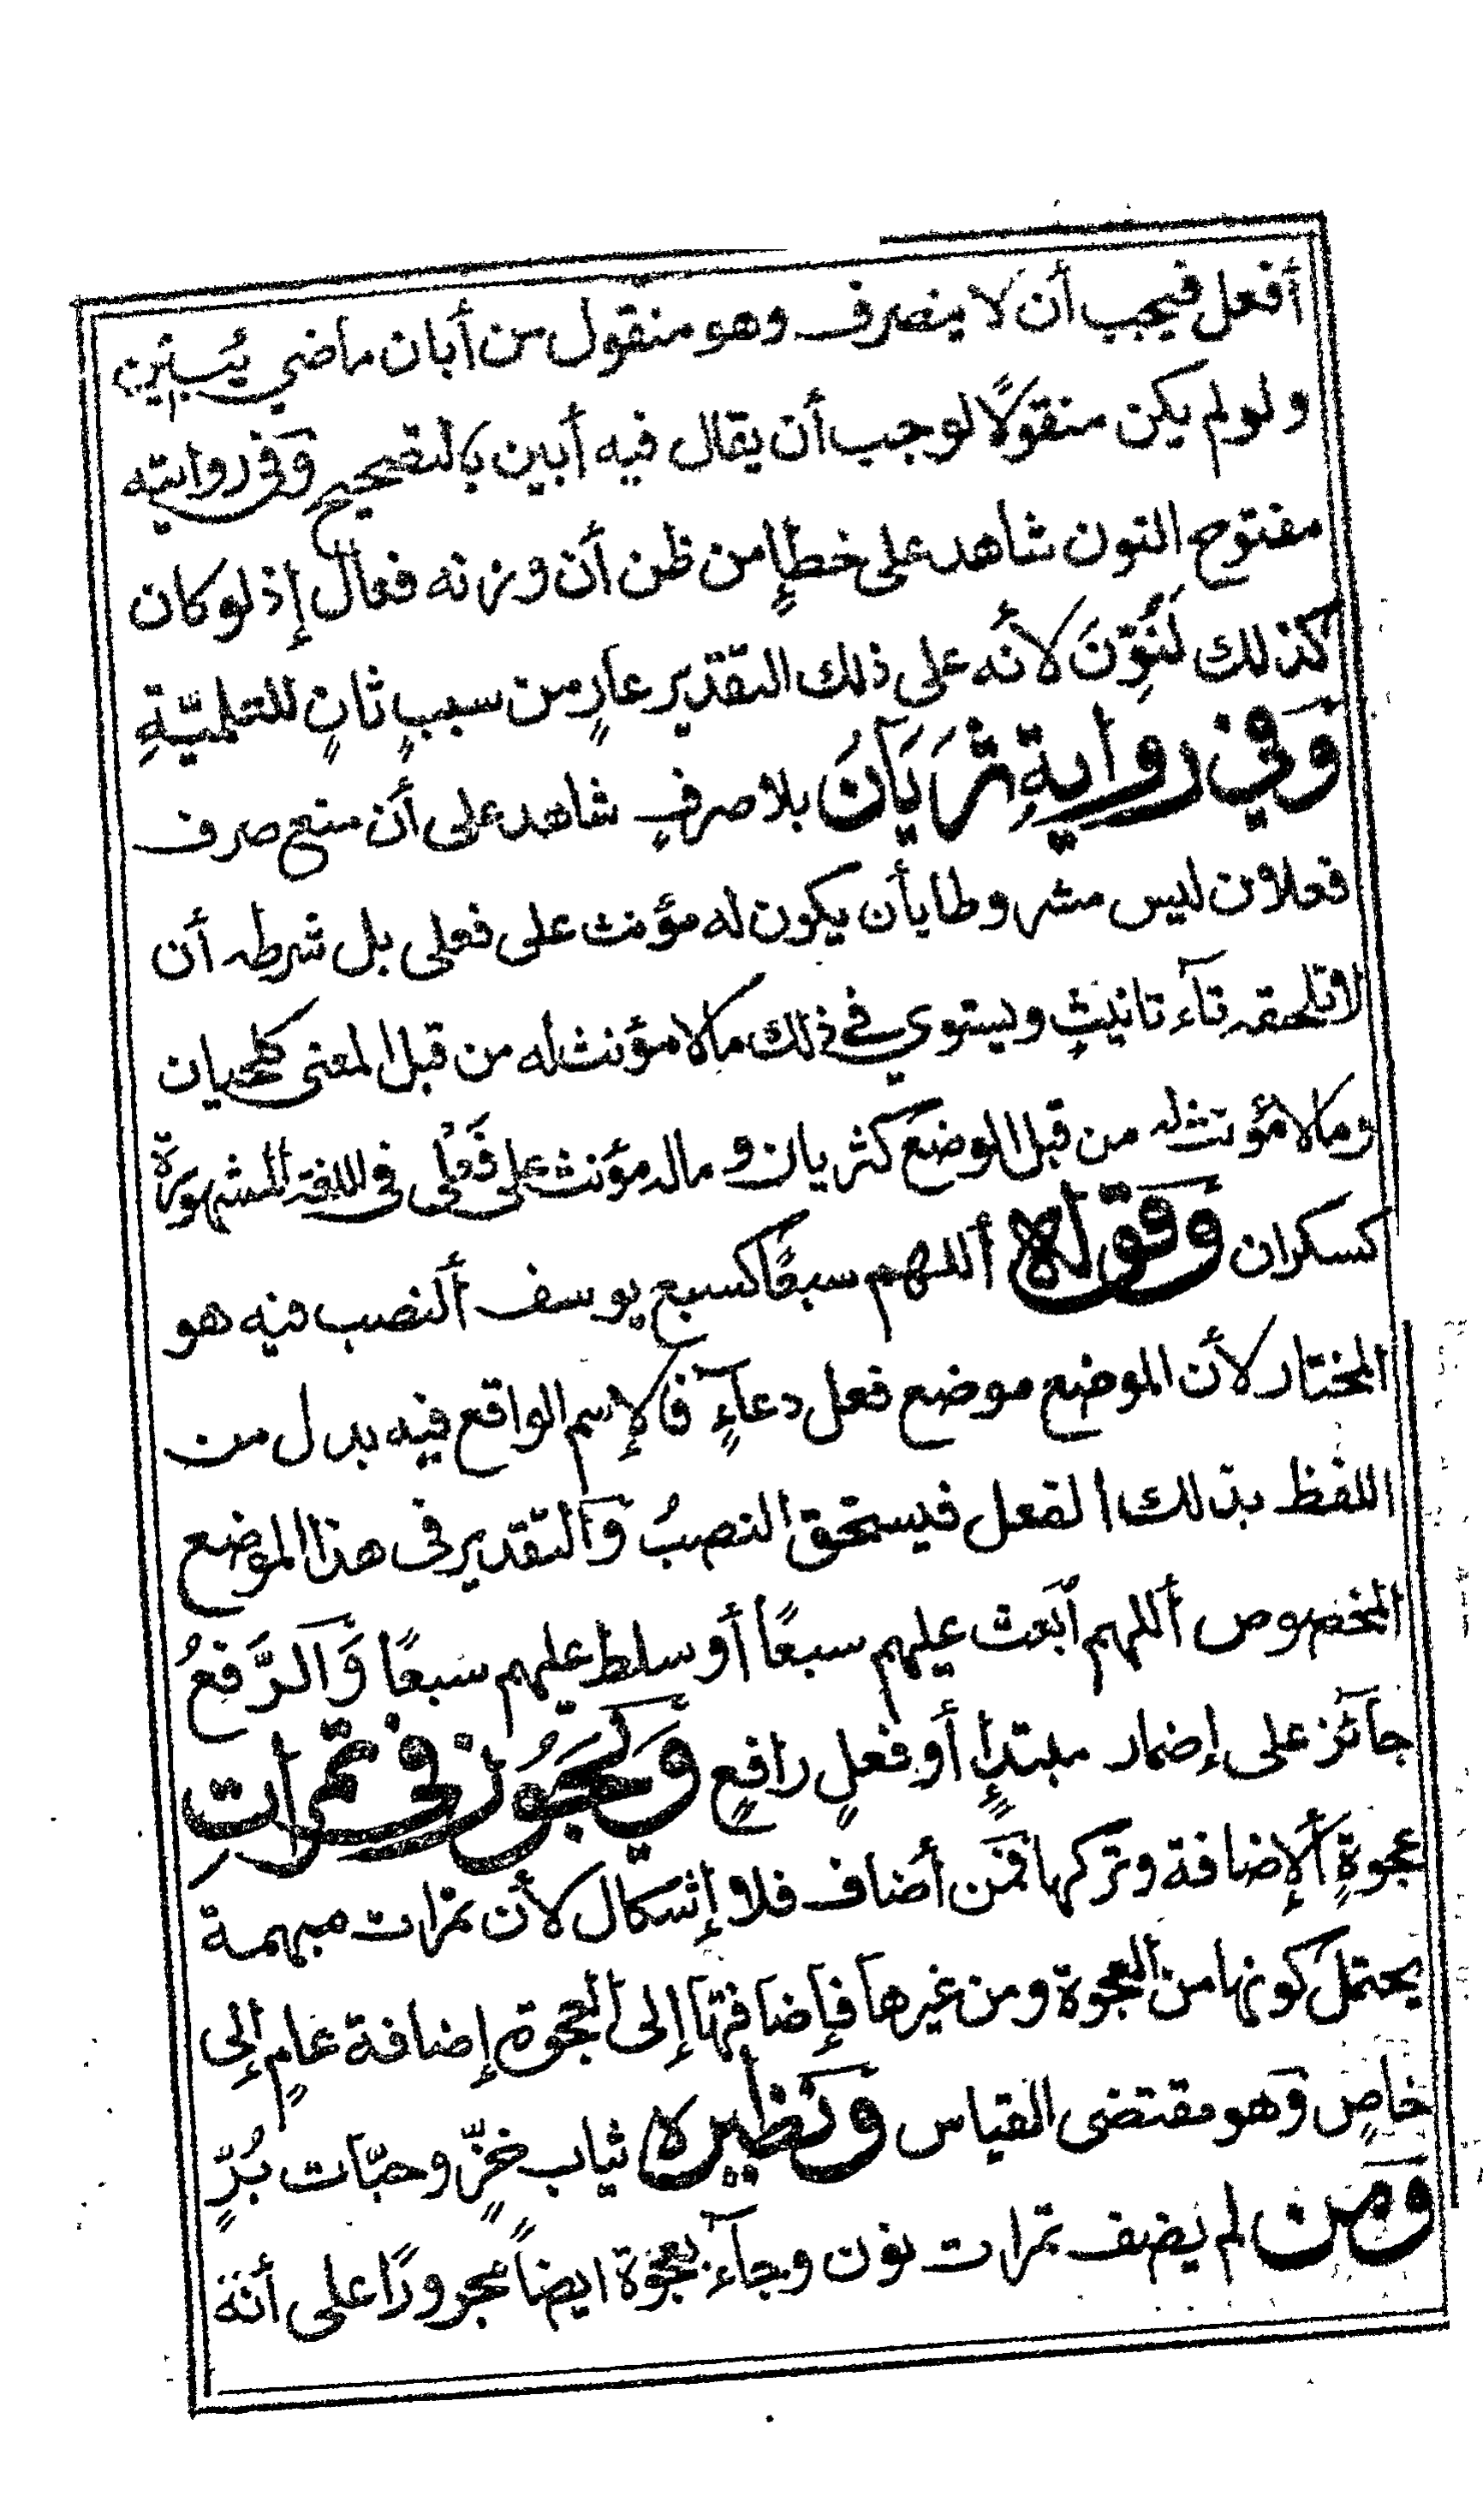 أفعل فيجب أن لا ينصرف وهو منقول من أبان ماضي يُبين
ولو لم يكن منقولًا لوجب أن يقال فيه أبين بالتصحيح وفي روايته
مفتوح النون شاهد على خطإٍ من ظن أن وزنه فعال إذ لو كان
كذلك لَنُوِّنَ لأنه على ذلك التقدير عارٍ من سببٍ ثانٍ للعلميّةِ
وَفي روايةِ ثَرَيَانَ بلا صرفٍ شاهد على أن منع صرف
فعلان ليس مشروطا بأن يكون له مؤنث على فعلى بل شرطه أن
لا تلحقه تآء تانيثٍ ويستوي في ذلك ما لا مؤنث له من قبل المعنى كلحيان
وما لا مؤنث له من قبل الوضع كثريان وما له مؤنث على فَعْلى في اللغة المشهورة
كسكران وَقوله أللهم سبعًا كسبع يوسف ألنصب فيه هو
المختار لأن الموضع موضع فعل دعآءٍ فالإسم الواقع فيه بدل من
اللفظ بذلك الفعل فيستحق النصبُ وَالتقدير في هذا الموضع
المخصوص أللهم ابعث عليهم سبعًا أو سلط عليهم سبعًا وَالرَّفعُ
جآئز على إضمار مبتدإٍ أو فعلٍ رافعٍ وَيَجُوز في تمراتِ
عجوةٍ ألإضافة وتركها فمن أضاف فلا إشكال لأن تمرات مبهمة
يحتمل كونها من العجوة ومن غيرها فإضافتها إلى العجوة إضافة عامٍ إلى
خاصٍ وهو مقتضى القياس وَنظيره ثياب خزٍّ وحبّات بُرٍّ
وَمن لم يضف تمرات نون وجآء بعجوة ايضاً مجرورًا على أنه